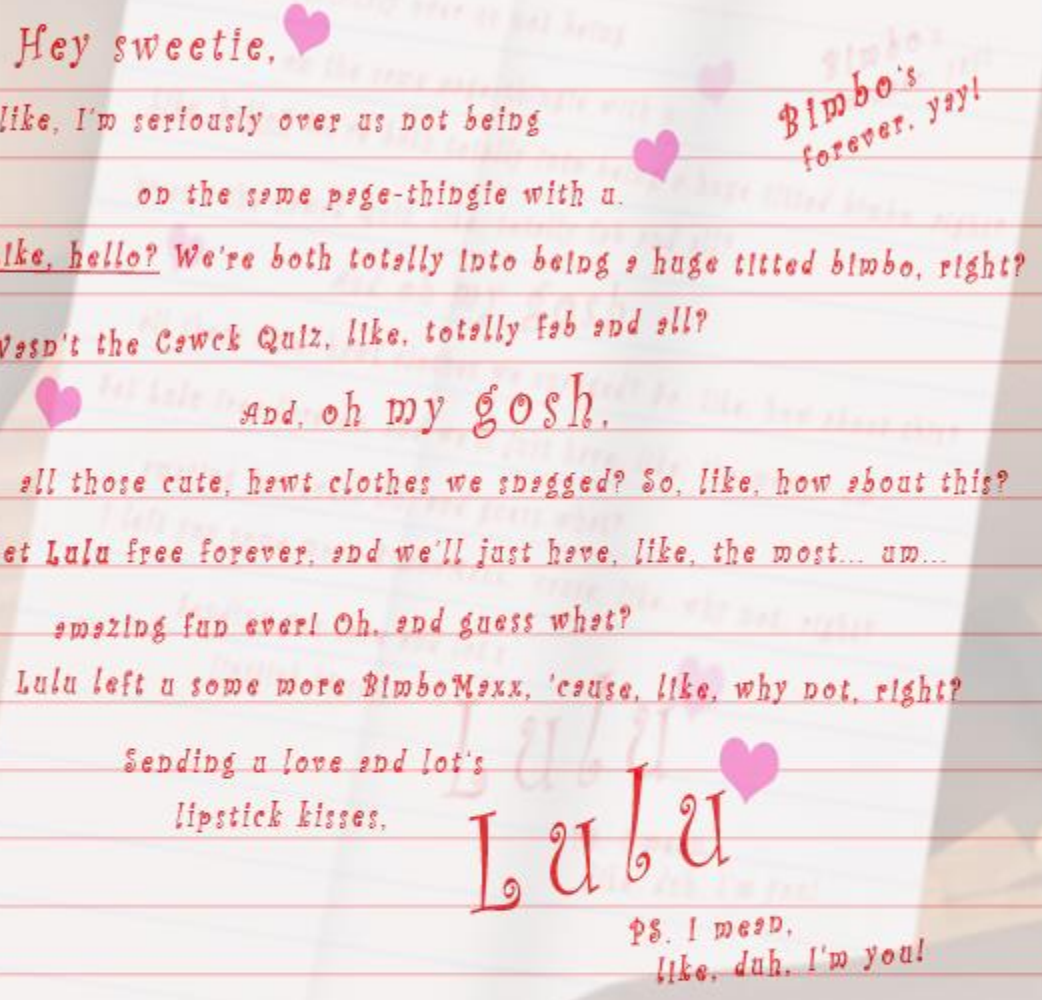 Hey sweetie,
Bimbo's
forever, yay!
like, I'm seriously over us not being
on the same page-thingie with u.
like, hello? We're both totally into being a huge titted bimbo, right?
Wasn't the Cawck Quiz, like, totally fab and all?
And, oh my gosh,
all those cute, hawt clothes we snagged? So, like, how about this?
et Lulu free forever, and we'll just have, like, the most... um...
amazing fun ever! Oh, and guess what?
Lulu left u some more BimboMaxx, 'cause, like, why not, right?
Sending u love and lot's
lipstick kisses,
Lulu
PS. I mean,
like, duh, I'm you!